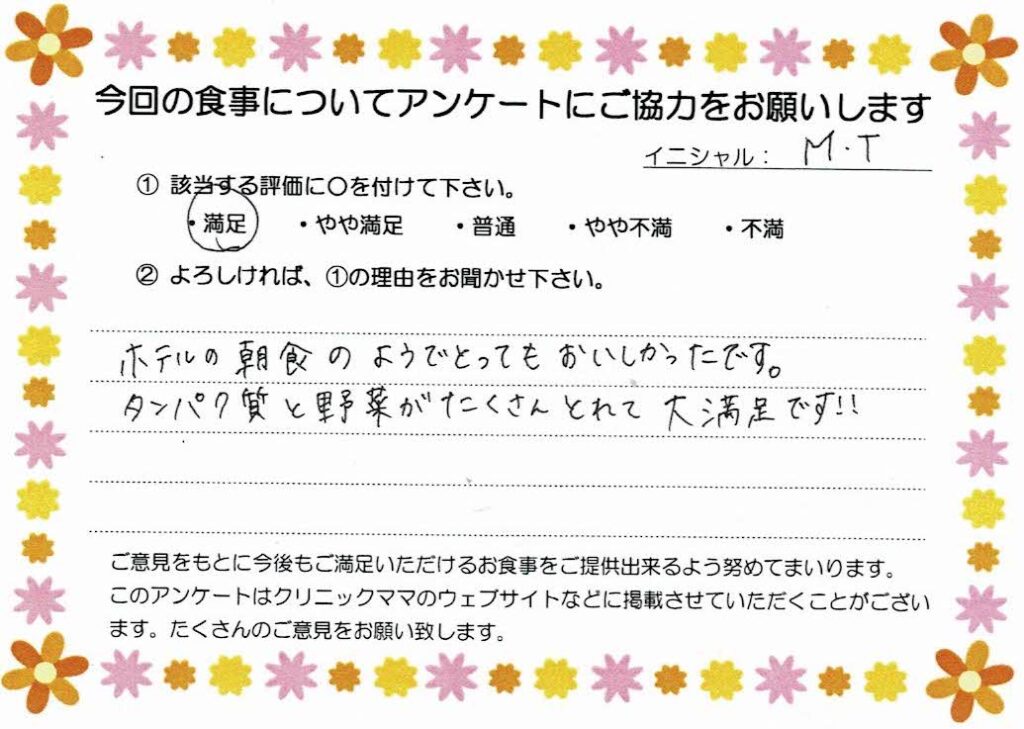 今回の食事についてアンケートにご協力をお願いします
イニシャル： M.T
① 該当する評価に〇を付けて下さい。
・満足 ・やや満足 ・普通 ・やや不満 ・不満
② よろしければ、①の理由をお聞かせ下さい。
ホテルの朝食のようでとってもおいしかったです。
タンパク質と野菜がたくさんとれて大満足です!!
ご意見をもとに今後もご満足いただけるお食事をご提供出来るよう努めてまいります。
このアンケートはクリニックママのウェブサイトなどに掲載させていただくことがござい
ます。たくさんのご意見をお願い致します。